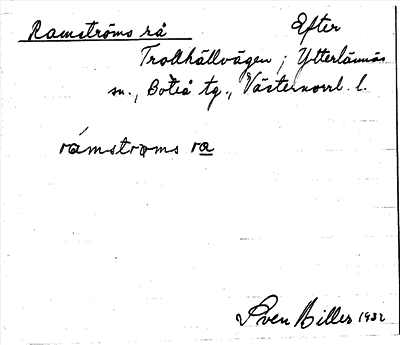 Ramströms rå Efter
Trollhällvägen; Ytterlännäs
sn., Boteå tg., Västernorrl. l.
ramstroms ra
Sven Biller 1932